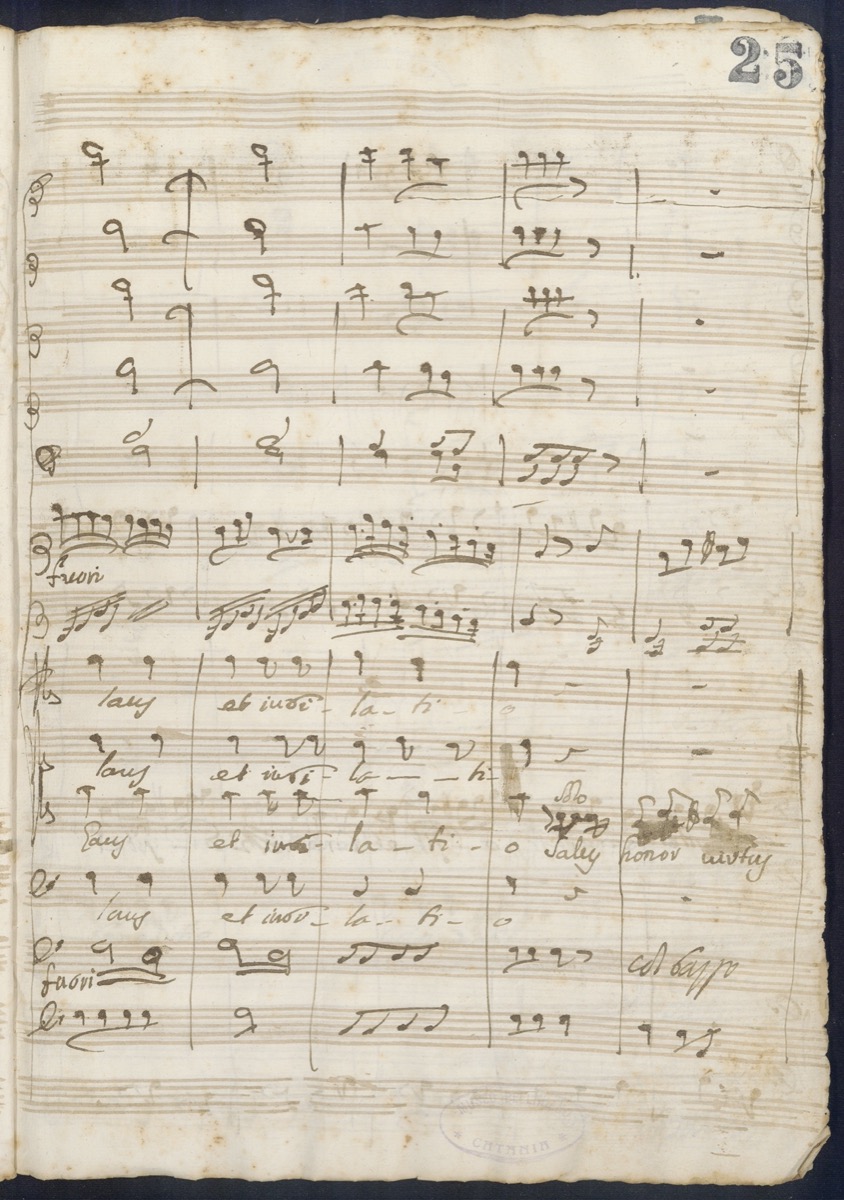 25
fuori
laus et iubi- la- ti- o
laus et iubi- la- - ti-
solo
laus et iubi- la- ti- o salus honor virtus
laus et iubi- la- ti- o
fuori
col basso
CATANIA